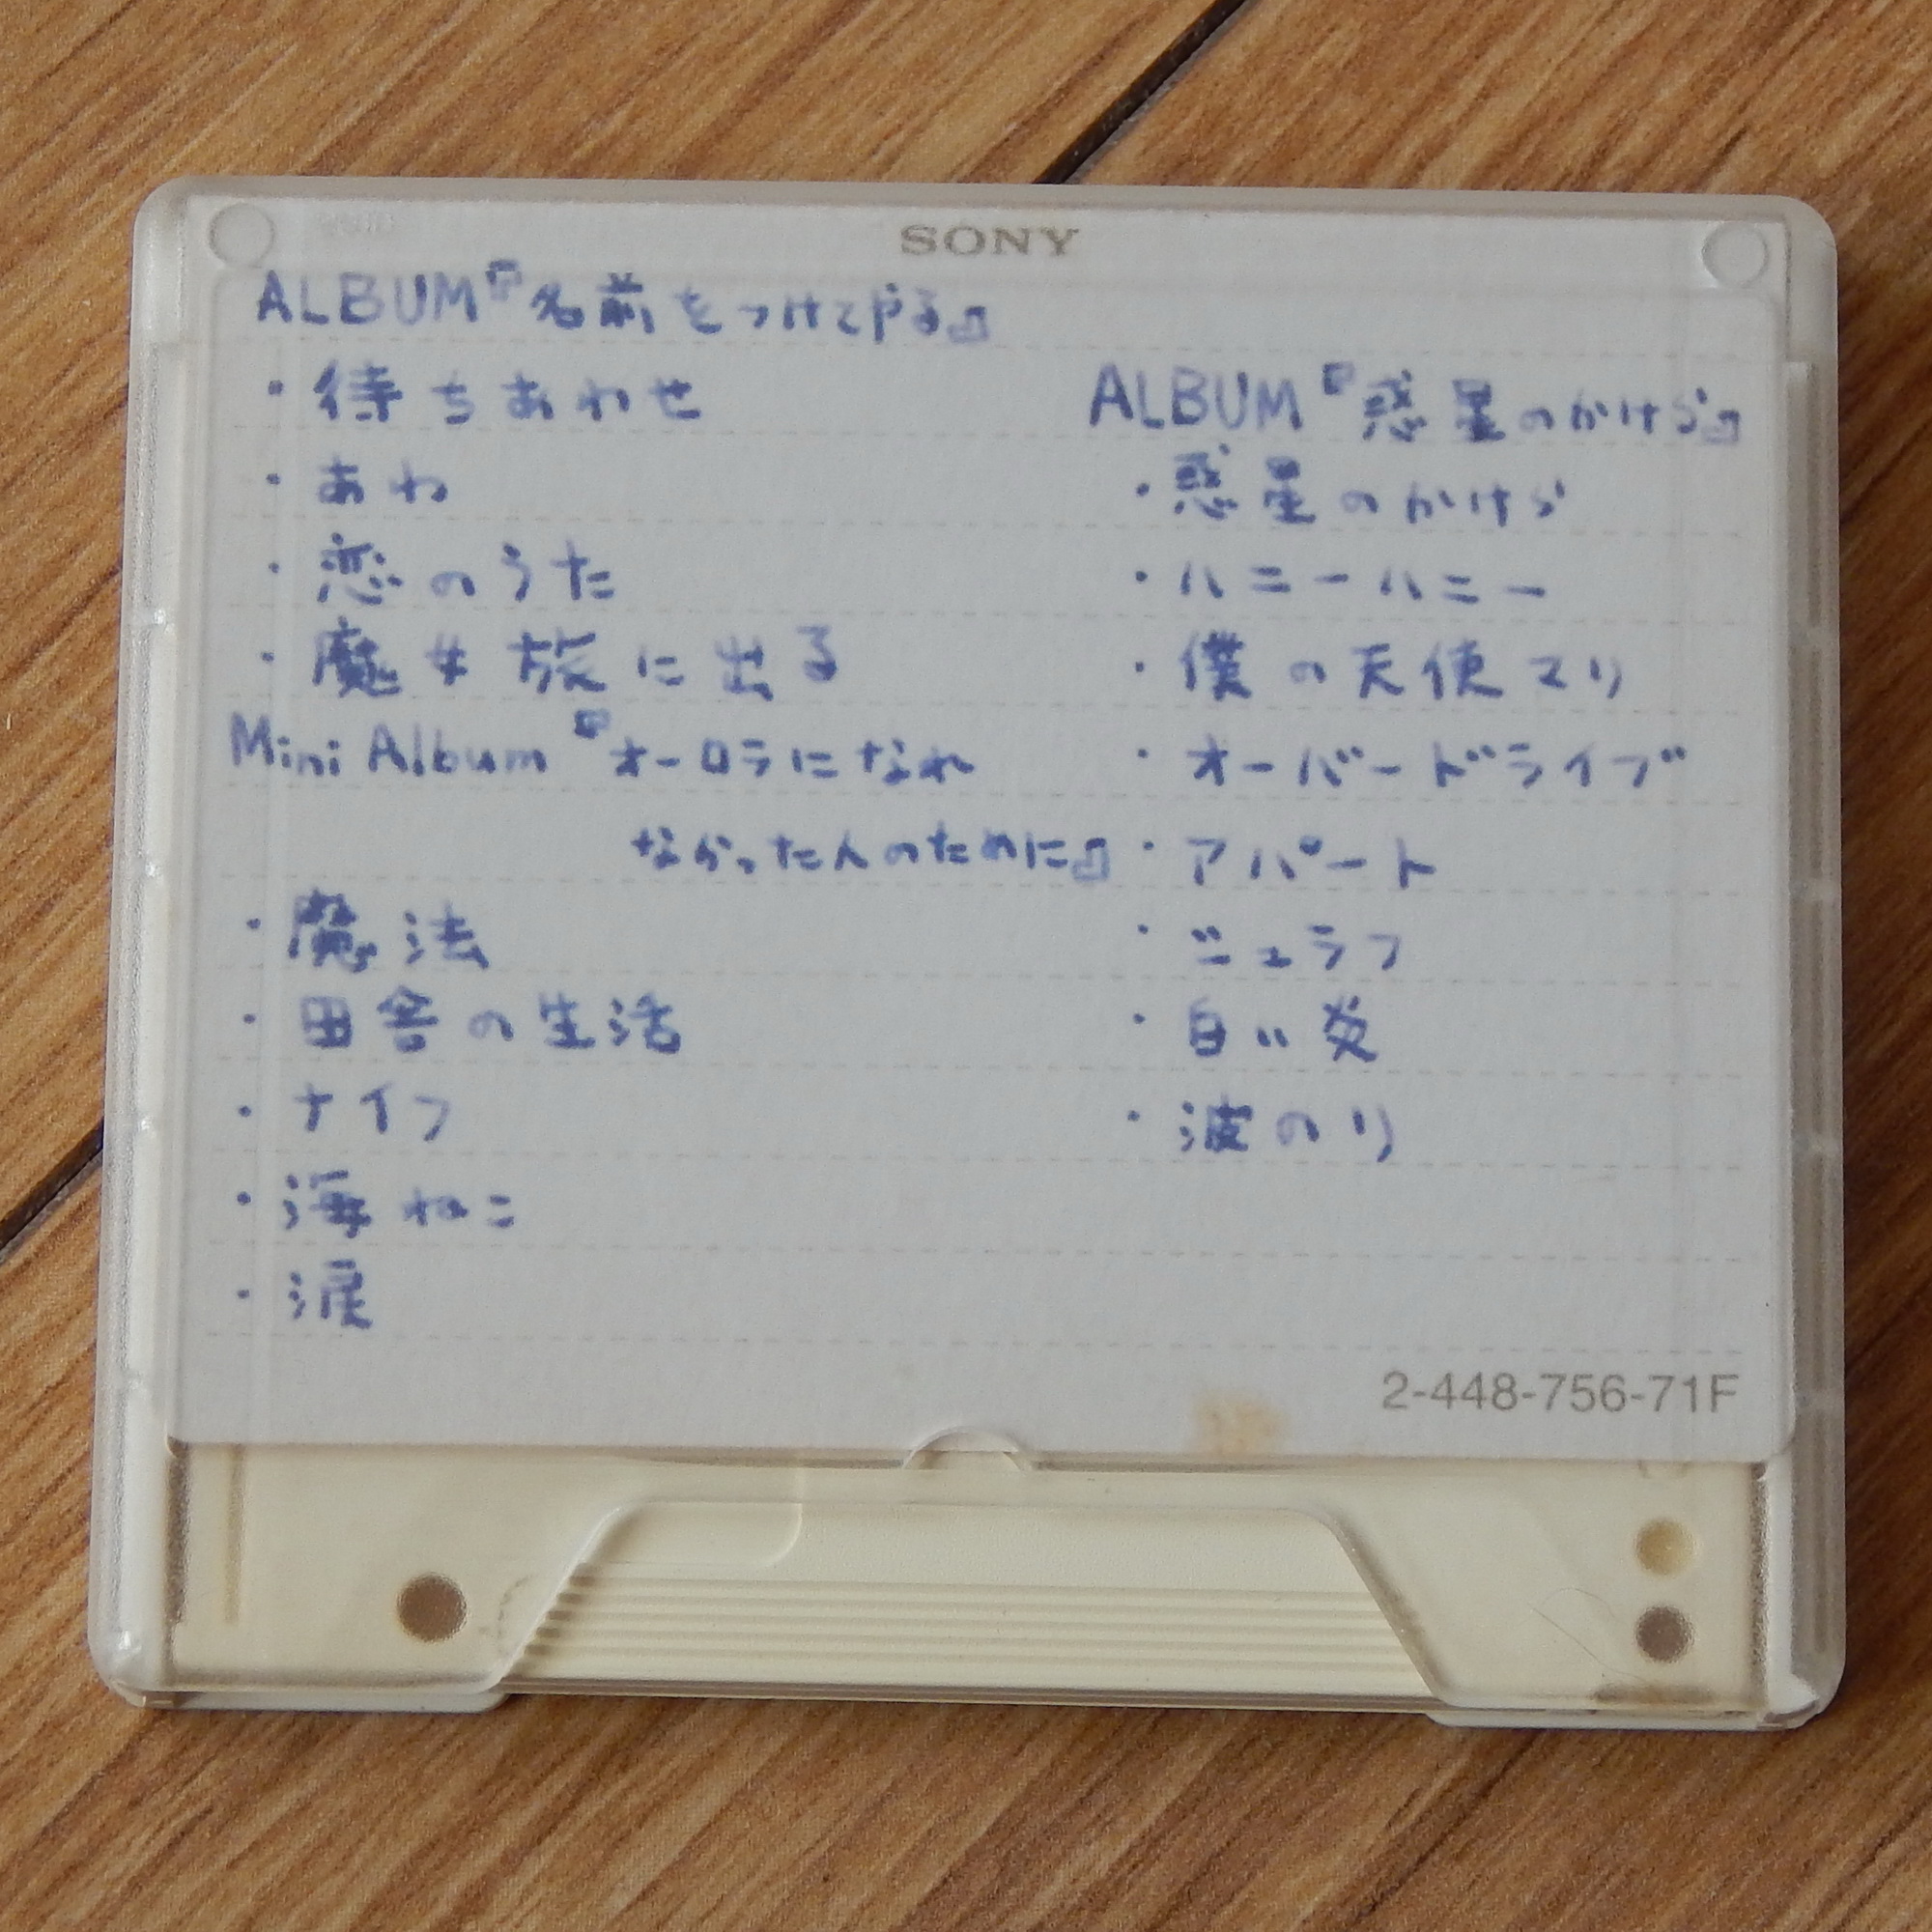 SONY
ALBUM『名前をつけてやる』
・待ちあわせ
・あわ
・恋のうた
・魔女旅に出る
Mini Album『オーロラになれ
なかった人のために』
・魔法
・田舎の生活
・ナイフ
・海ねこ
・涙
ALBUM『惑星のかけら』
・惑星のかけら
・ハニーハニー
・僕の天使マリ
・オーバードライブ
・アパート
・シュラフ
・白い炎
・波のり
2-448-756-71F